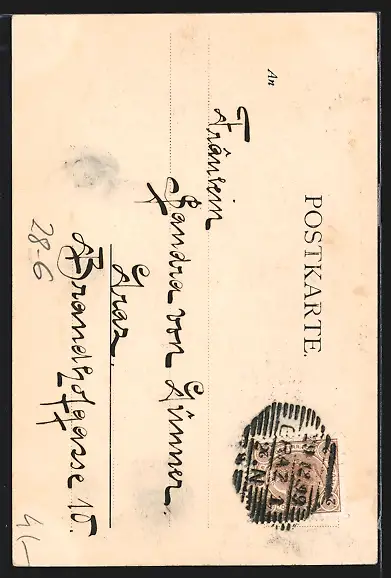 POSTKARTE.
An
Fräulein
Sandra von Günner.
Graz.
Brandhofgasse 10.
GRAZ 1
28-6
4/-